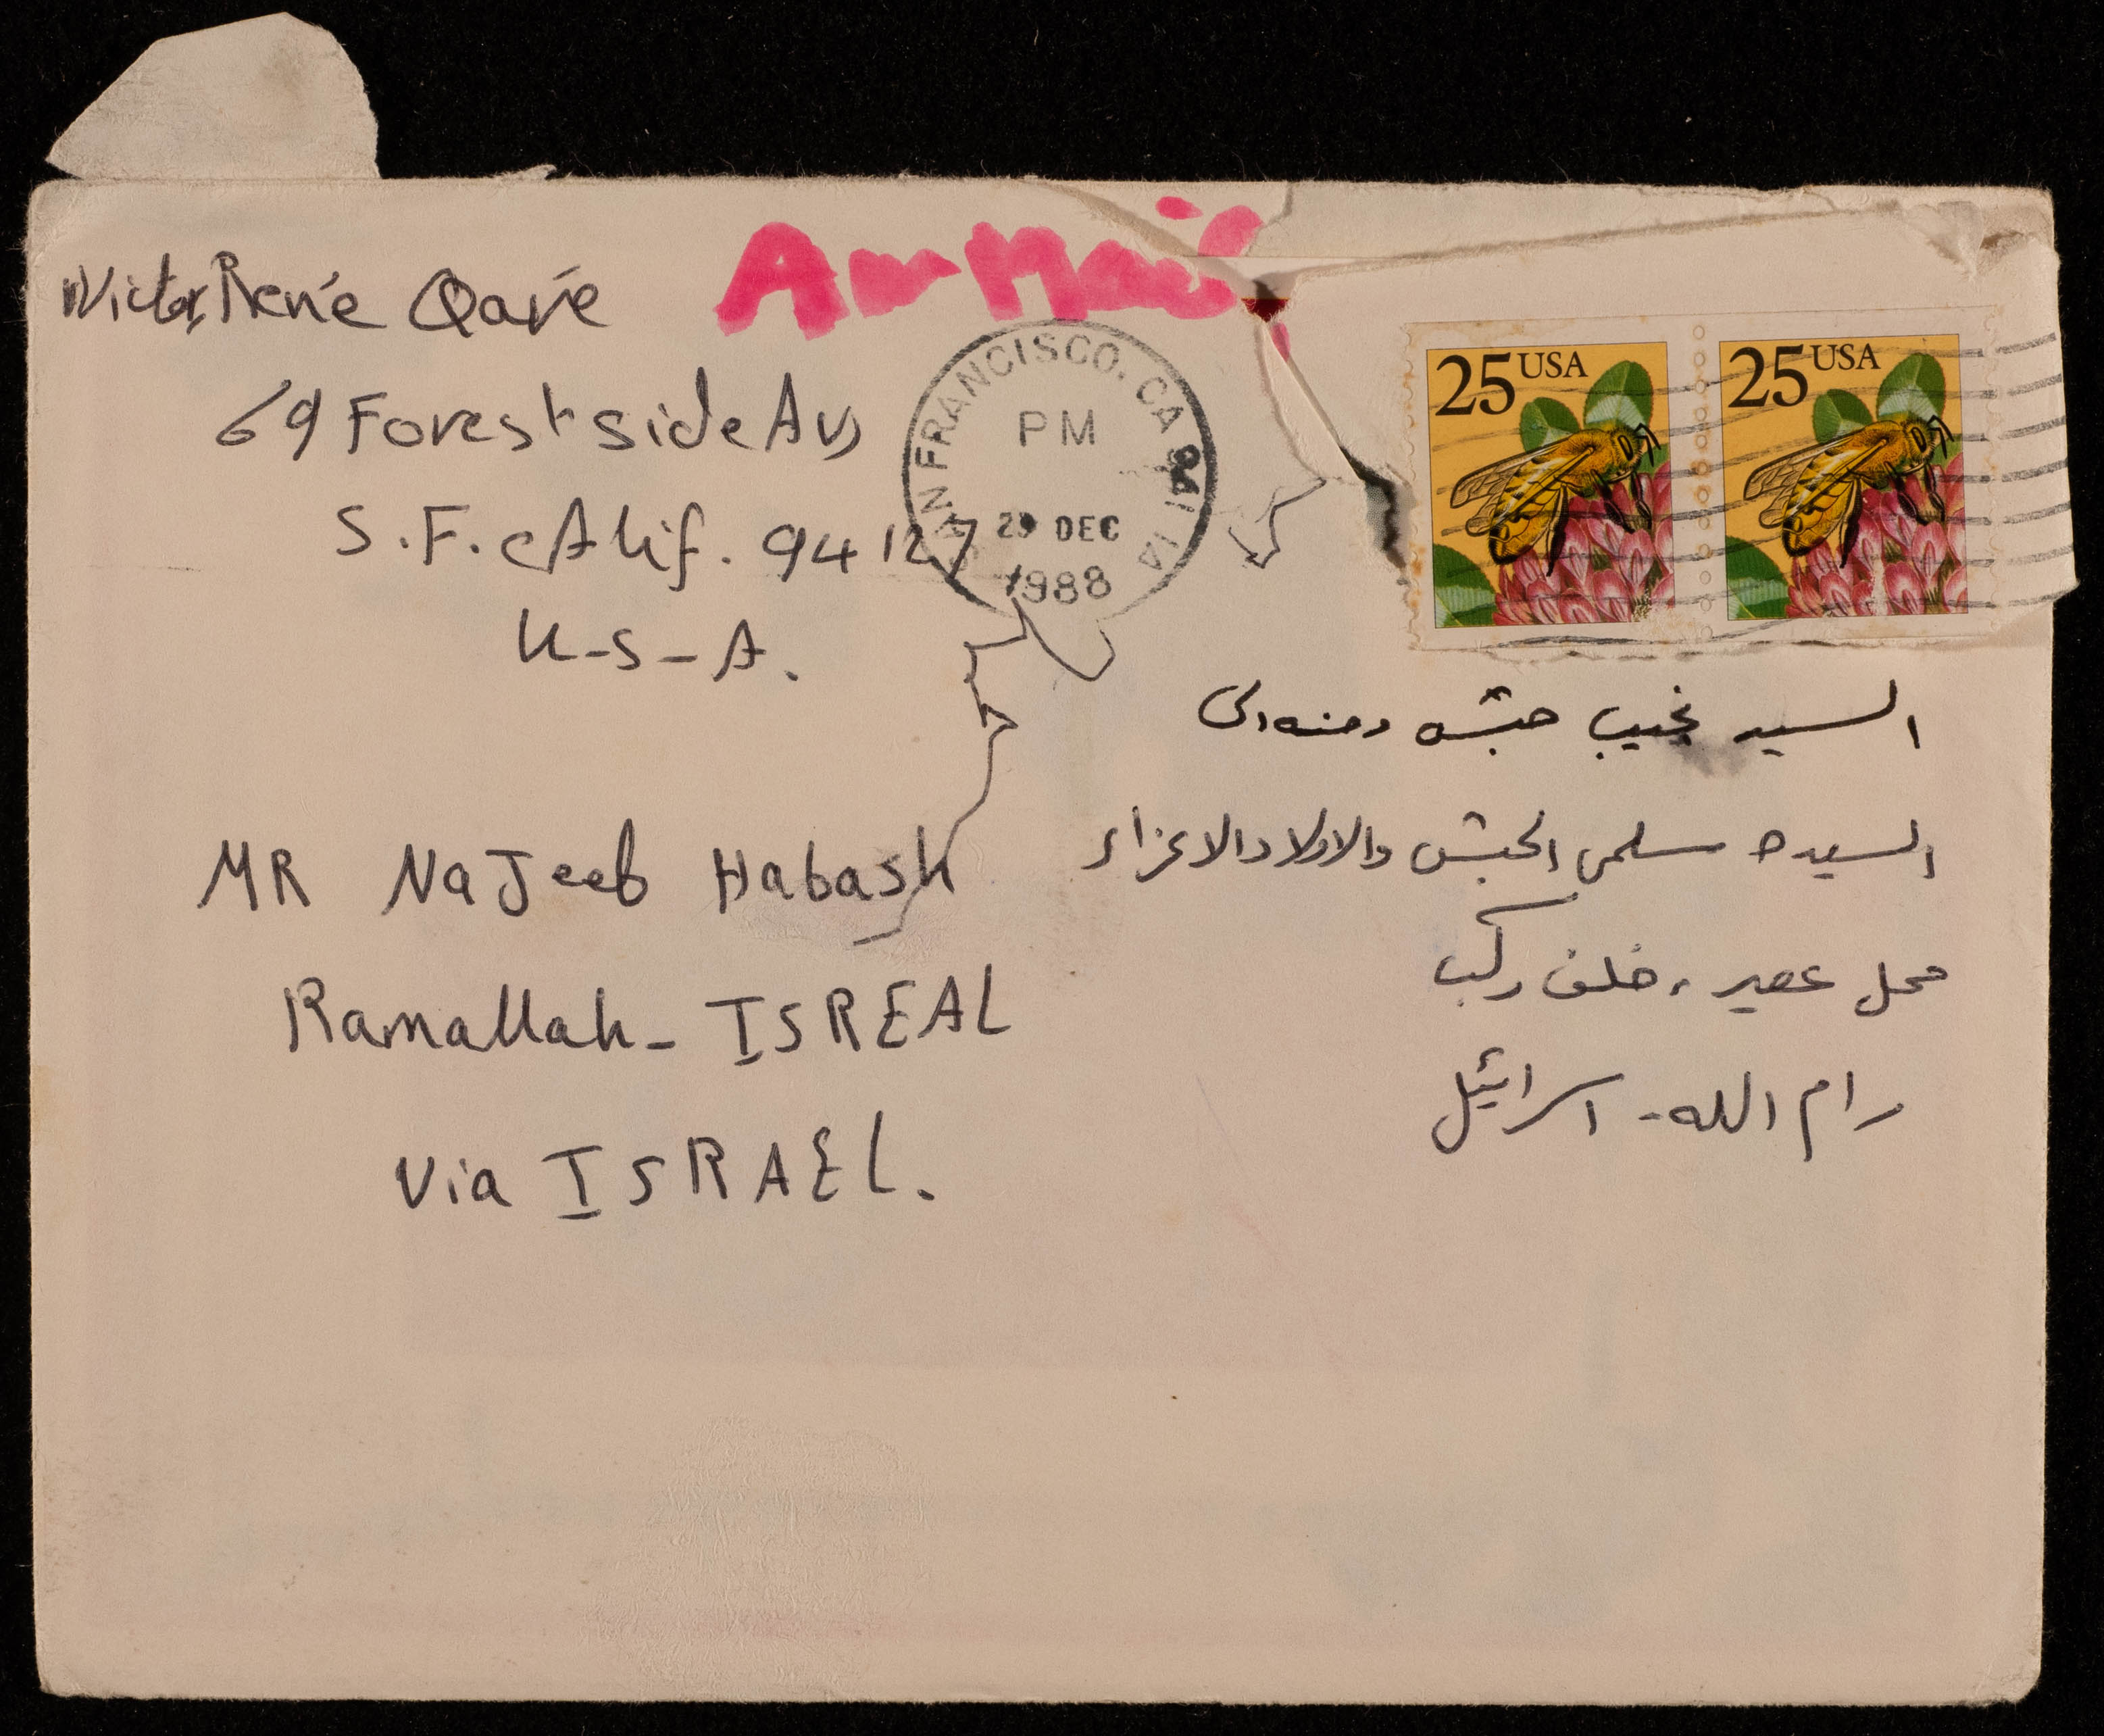 Victor, René Qaré
Air Mail
69 Forest side Av
S.F. cAlif. 94127
U-S-A.
SAN FRANCISCO, CA 941 1A
PM
29 DEC
1988
25 USA
25 USA
السيد نجيب حبش ومنه الى
السيده سلمى الحبش والاولاد الاعزاء
محل عصير، خلف ركب
رام الله - اسرائيل
MR NaJeeb Habash
Ramallah - ISREAL
Via ISRAEL.